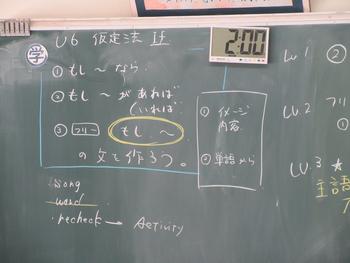 学 U6 仮定法 If
① もし 〜 なら
② もし 〜 があれば
(いれば
③ フリー もし 〜
の文を作ろう。
2:00
① イメージ
内容
② 単語から
song
word
・recheck → Activity
Lv.1 ②
Lv.2 フリー
①
Lv.3 ★
主語